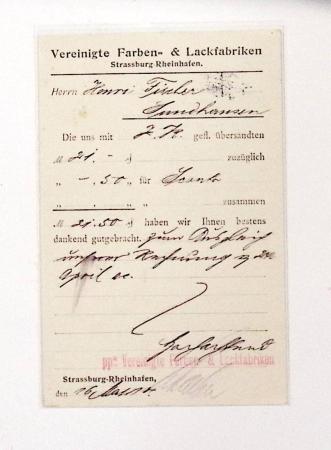 Vereinigte Farben- & Lackfabriken
Strassburg-Rheinhafen.
Herrn Henri Fischer
Sundhausen
Die uns mit P. K. gefl. übersandten
M 21.- ₰ zuzüglich
„ -.50 „ für Sconto
„ . „ zusammen
M 21.50 ₰ haben wir Ihnen bestens
dankend gutgebracht. zum Ausgleich
unserer Rechnung
April
Hochachtend
ppa Vereinigte Farben- & Lackfabriken
Strassburg-Rheinhafen,
den 16.